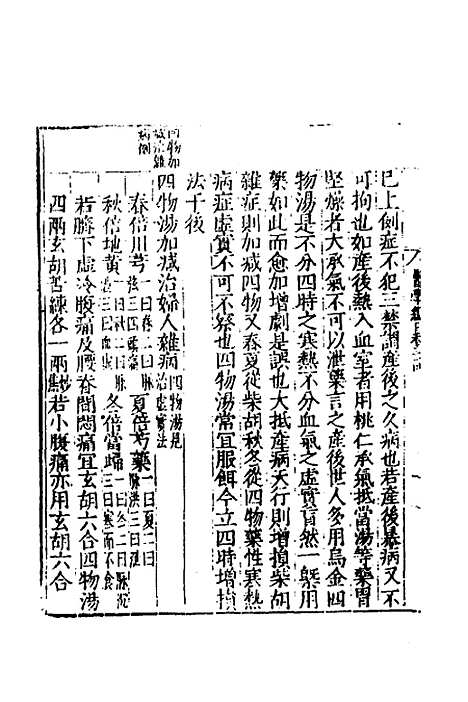 已上倒症不犯三禁謂産後之久病也若産後暴病又不
可拘也如産後熱入血室者用桃仁承氣抵當湯等藥胃
堅燥者大承氣不可以泄藥言之産後世人多用烏金四
物湯是不分四時之寒熱不分血氣之虛實盲然一槩用
藥如此而愈加增劇是誤也大抵産病大行則增損柴胡
雜症則加减四物又春夏從柴胡秋冬從四物藥性寒熱
病症虛實不可不察也四物湯常宜服餌今立四時增損
法于後
四物加
减治雜
病例
四物湯加减治婦人雜病四物湯見
治虛實法
春倍川芎一曰春二曰脉
弦三曰頭痛夏倍芍藥一曰夏二曰
脉洪三曰泄
秋倍地黃一曰秋二曰脉
澁三曰血虛冬倍當歸一曰冬二曰脉沉
三曰寒而不食
若臍下虛冷腹痛及腰脊間悶痛宜玄胡六合四物湯
四兩玄胡苦練各一兩炒若小腹痛亦用玄胡六合